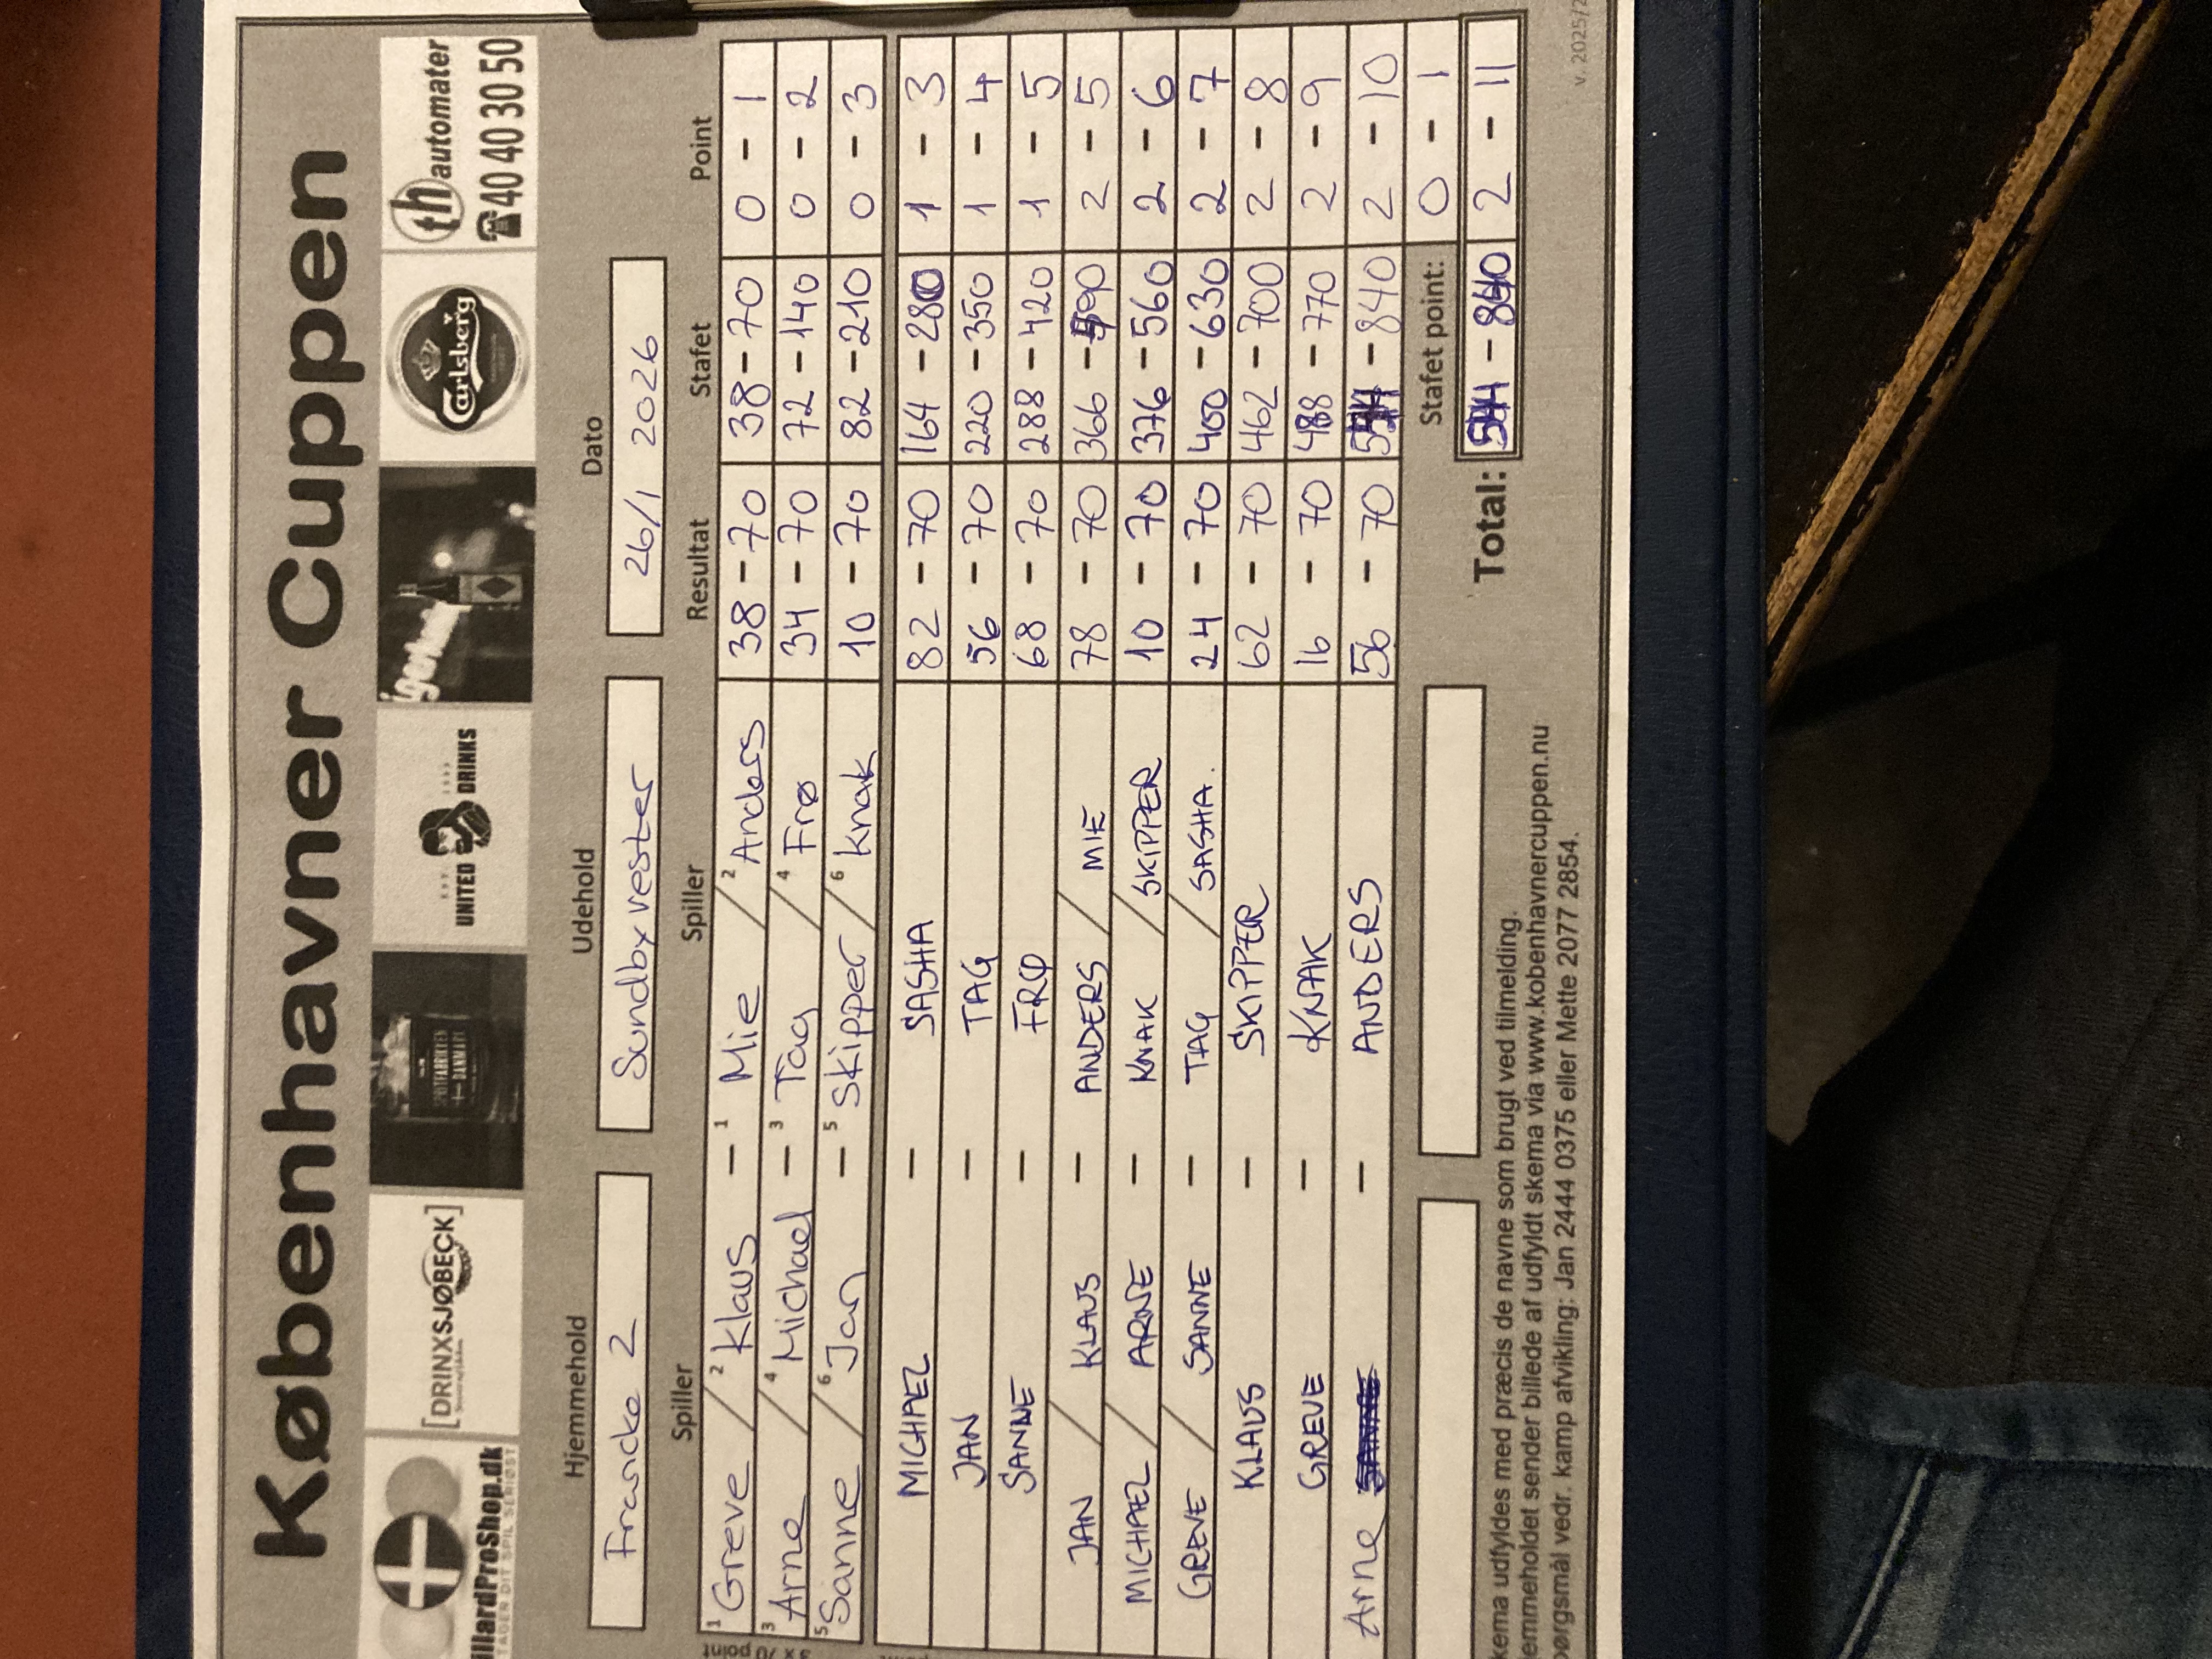 Københavner Cuppen
illardProShop.dk
TAGER DIT SPIL SERIØST
[DRINXSJØBECK]
SPRITFABRIKKEN DANMARK
UNITED DRINKS
igerhund
Carlsberg
th automater
☎40 40 30 50
Hjemmehold Udehold Dato
Francke 2 Sundby vester 26/1 2026
Spiller Spiller Resultat Stafet Point
1 Greve / 2 Klaus – 1 Mie / 2 Anders 38 – 70 38 – 70 0 – 1
3 Arne / 4 Michael – 3 Tag / 4 Frø 34 – 70 72 – 140 0 – 2
5 Sanne / 6 Jan – 5 Skipper / 6 Knak 10 – 70 82 – 210 0 – 3
MICHAEL – SASHA 82 – 70 164 – 280 1 – 3
JAN – TAG 56 – 70 220 – 350 1 – 4
SANNE – FRØ 68 – 70 288 – 420 1 – 5
JAN / KLAUS – ANDERS / MIE 78 – 70 366 – 490 2 – 5
MICHAEL / ARNE – KNAK / SKIPPER 10 – 70 376 – 560 2 – 6
GREVE / SANNE – TAG / SASHA. 24 – 70 400 – 630 2 – 7
KLAUS – SKIPPER 62 – 70 462 – 700 2 – 8
GREVE – KNAK 16 – 70 488 – 770 2 – 9
Arne – ANDERS 56 – 70 544 – 840 2 – 10
Stafet point: 0 – 1
Total: 544 – 840 2 – 11
kema udfyldes med præcis de navne som brugt ved tilmelding.
emmeholdet sender billede af udfyldt skema via www.kobenhavnercuppen.nu
pørgsmål vedr. kamp afvikling: Jan 2444 0375 eller Mette 2077 2854.
v. 2025/2